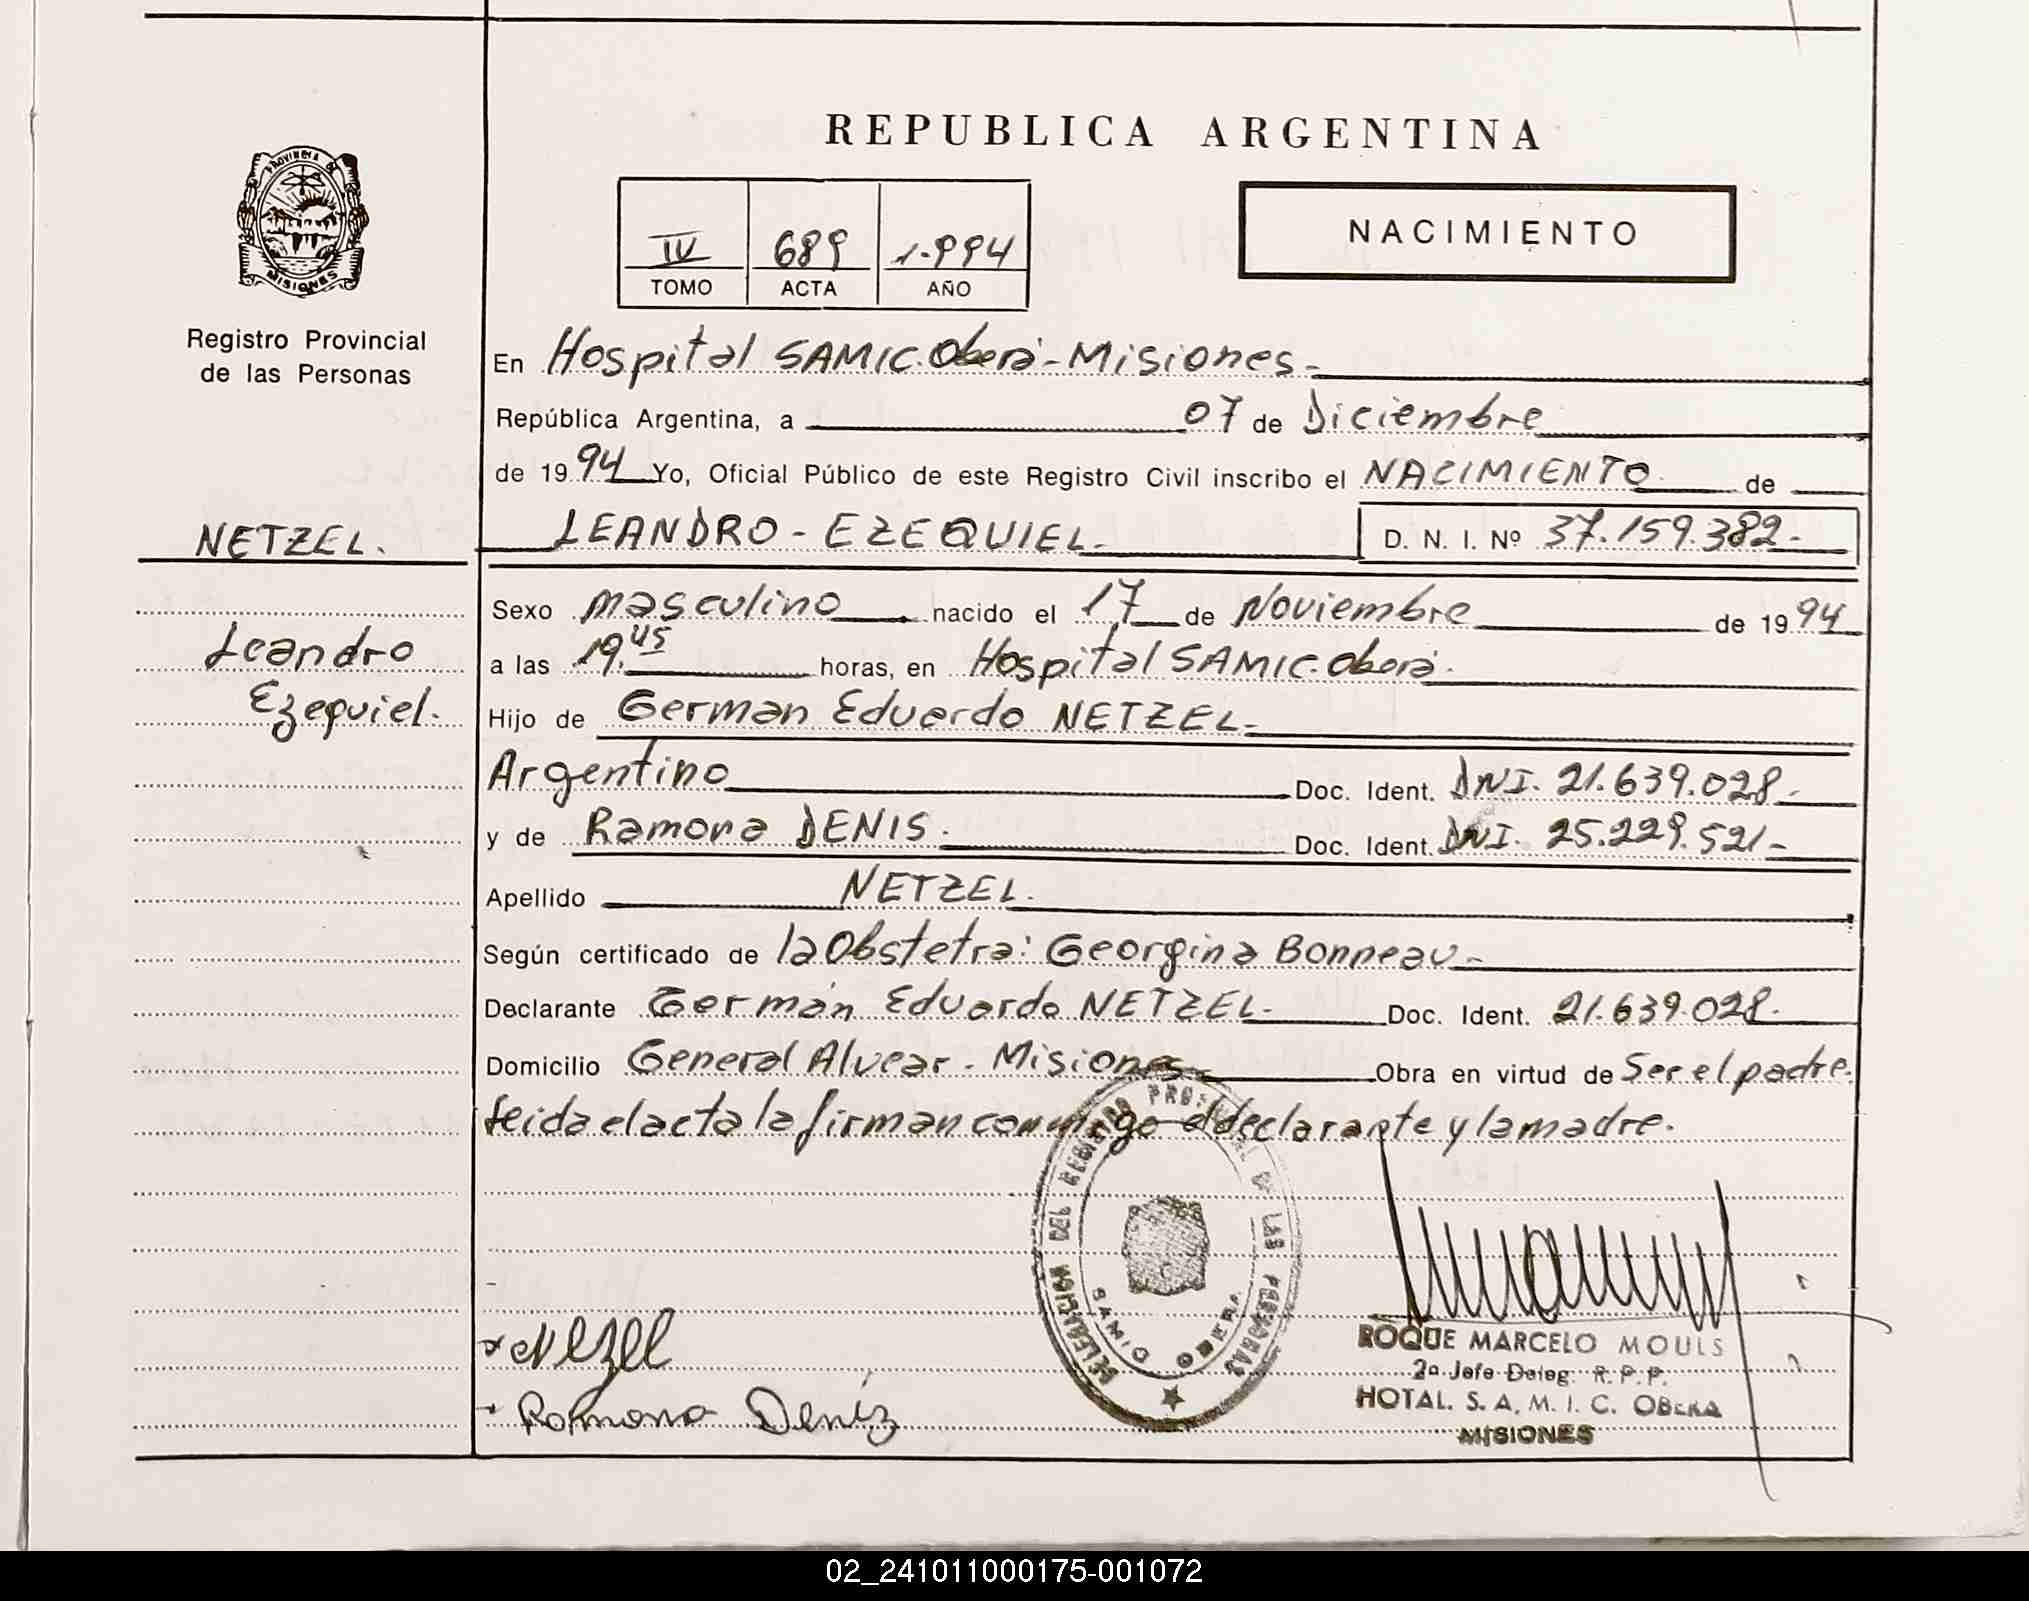 REPUBLICA ARGENTINA
PROVINCIA DE
MISIONES
Registro Provincial
de las Personas
IV 689 1.994
TOMO ACTA AÑO
NACIMIENTO
En Hospital SAMIC. Oberá - Misiones.-
República Argentina, a 07 de Diciembre
de 1994 Yo, Oficial Público de este Registro Civil inscribo el NACIMIENTO de
NETZEL. LEANDRO - EZEQUIEL.- D. N. I. Nº 37.159.382.-
Sexo masculino nacido el 17 de Noviembre de 1994
Leandro a las 19.45 horas, en Hospital SAMIC. Oberá.
Ezequiel. Hijo de German Eduardo NETZEL.-
Argentino Doc. Ident. DNI. 21.639.028.-
y de Ramona DENIS. Doc. Ident. DNI. 25.229.521.-
Apellido NETZEL.
Según certificado de la Obstetra: Georgina Bonneau.-
Declarante Germán Eduardo NETZEL.- Doc. Ident. 21.639.028.
Domicilio General Alvear. Misiones Obra en virtud de Ser el padre.
leida el acta la firman conmigo el declarante y la madre.
DELEGACION DEL REGISTRO PROVINCIAL DE LAS PERSONAS
SAMIC OBERA
Nezel
Ramona Deniz
ROQUE MARCELO MOULS
2º Jefe Deleg. R. P. P.
HOTAL. S. A. M. I. C. OBERA
MISIONES
02_241011000175-001072